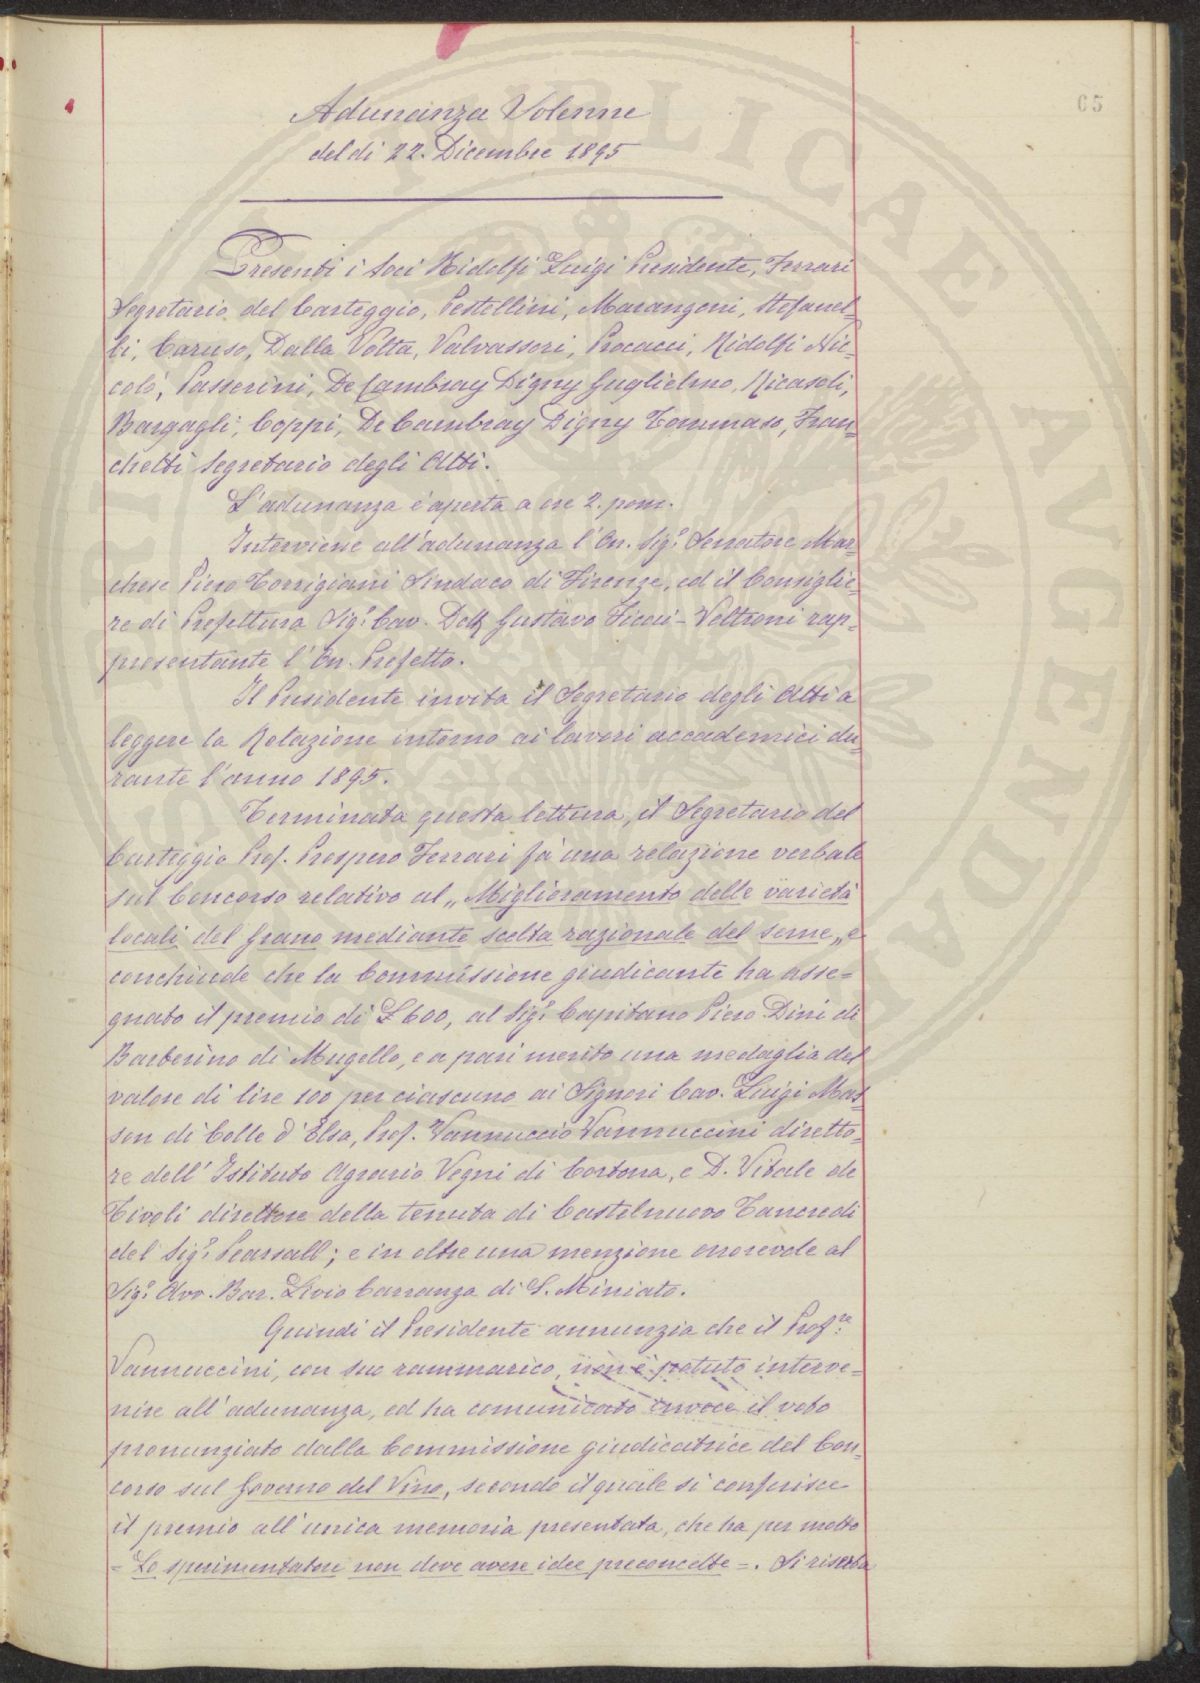 65
Adunanza Solenne
del dì 22. Dicembre 1895
Presenti i Soci Ridolfi Luigi Presidente, Ferrari
Segretario del Carteggio, Pestellini, Marangoni, Stefanel-
li, Caruso, Dalla Volta, Valvassori, Procacci, Ridolfi Nic-
colò, Passerini, De Cambray Digny Guglielmo, Ricasoli,
Bargagli, Coppi, De Cambray Digny Tommaso, Fran=
chetti Segretario degli Atti.
L'adunanza è aperta a ore 2. pom.
Interviene all'adunanza l'On. Sigr. Senatore Mar=
chese Piero Torrigiani Sindaco di Firenze, ed il Consiglie=
re di Prefettura Sigr. Cav. Dott Gustavo Ficai-Veltroni rap=
presentante l'On. Prefetto.
Il Presidente invita il Segretario degli Atti a
leggere la Relazione intorno ai lavori accademici du=
rante l'anno 1895.
Terminata questa lettura, il Segretario del
Carteggio Prof. Prospero Ferrari fà una relazione verbale
sul Concorso relativo al „Miglioramento delle varietà
locali del grano mediante scelta razionale del seme„ e
conchiude che la Commissione giudicante ha asse=
gnato il premio di £ 600, al Sigr. Capitano Piero Dini di
Barberino di Mugello, e a pari merito una medaglia del
valore di lire 100 per ciascuno ai Signori Cav. Luigi Mas=
son di Colle d'Elsa, Prof. Vannuccio Vannuccini diretto=
re dell'Istituto Agrario Vegni di Cortona, e D. Vitale de
Tivoli direttore della tenuta di Castelnuovo Tancredi
del Sigr. Pearsall; e in oltre una menzione onorevole al
Sigr. Avv. Bar. Livio Carranza di S. Miniato.
Quindi il Presidente annunzia che il Profre.
Vannuccini, con suo rammarico, non è potuto interve=
nire all'adunanza, ed ha comunicato invece il voto
pronunziato dalla Commissione giudicatrice del Con=
corso sul Governo del Vino, secondo il quale si conferisce
il premio all'unica memoria presentata, che ha per motto
= Lo sperimentatore non deve avere idee preconcette =. Si riserba